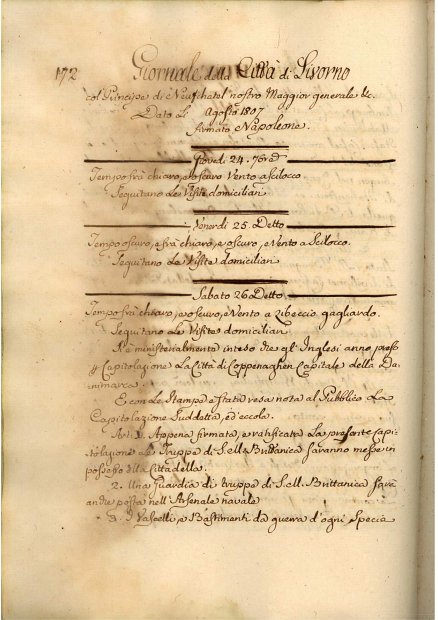 172 Giornale della Città di Livorno
col Principe di Neufchatel nostro Maggior generale &c.
Dato Li Agosto 1807
firmato Napoleone.
Giovedì 24. 7bre
Tempo frà chiaro, e oscuro Vento a Scilocco.
Seguitano Le Visite domiciliari
Venerdì 25. Detto
Tempo oscuro, e frà chiaro, e oscuro, e Vento a Scilocco.
Seguitano Le Visite domiciliari
Sabato 26 Detto
Tempo frà chiaro, e oscuro, e Vento a Libeccio gagliardo.
Seguitano Le Visite domiciliari
Si è ministerialmente inteso che gl'Inglesi anno preso
p Capitolazione La Città di Coppenaghen Capitale della Da,
nimarca.
E con Le Stampe è stata resa nota al Pubblico La
Capitolazione Suddetta, ed'eccola.
Art. 1. Appena firmata, e ratificata La presente Capi,
tolazione Le Truppe di S. M. Brittanica saranno messe in
possesso della Cittadella.
2. Una Guardia di truppe di S. M. Brittanica sarà
anche posta nell'Arsenale navale
3. I Vascelli, e Bastimenti da guerra d'ogni Specie